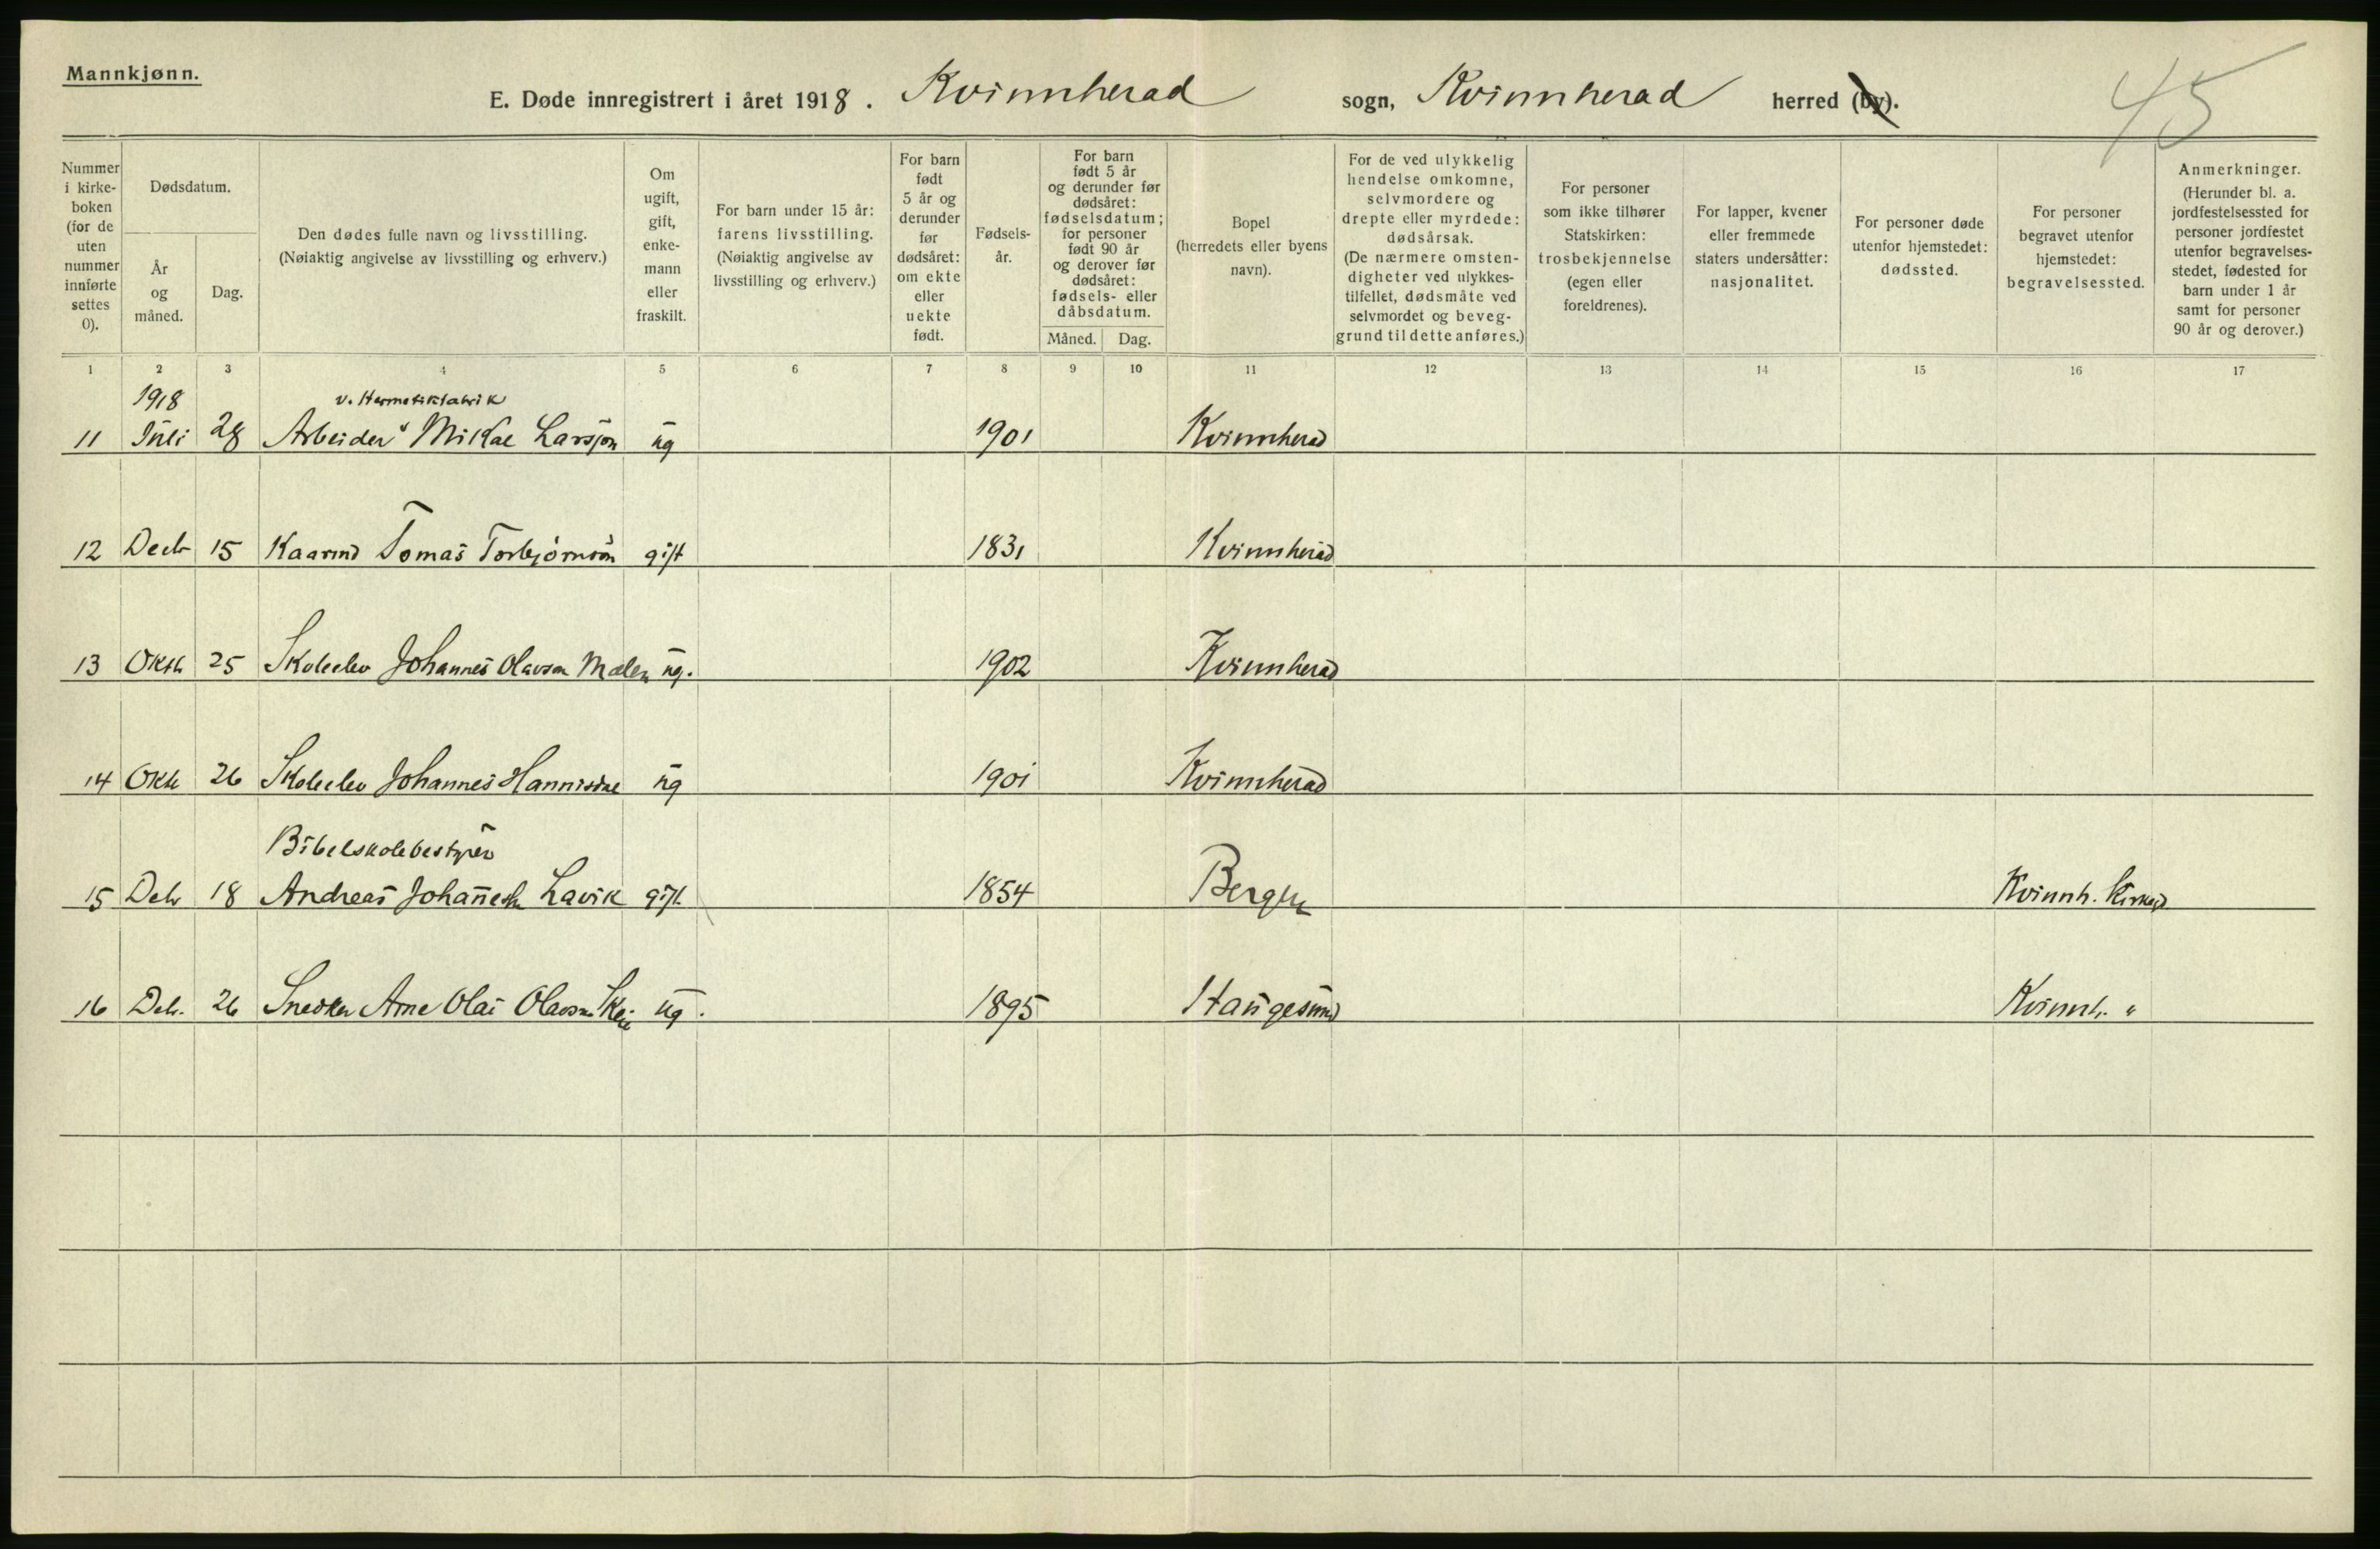 Mannkjønn.
45
E. Døde innregistrert i året 1918. Kvinnherad sogn, Kvinnherad herred (by).
Nummer i kirkeboken (for de uten nummer innførte settes 0).
Dødsdatum.
År og måned.
Dag.
Den dødes fulle navn og livsstilling. (Nøiaktig angivelse av livsstilling og erhverv.)
Om ugift, gift, enkemann eller fraskilt.
For barn under 15 år: farens livsstilling. (Nøiaktig angivelse av livsstilling og erhverv.)
For barn født 5 år og derunder før dødsåret: om ekte eller uekte født.
Fødselsår.
For barn født 5 år og derunder før dødsåret: fødselsdatum; for personer født 90 år og derover før dødsåret: fødsels- eller dåbsdatum.
Måned. Dag.
Bopel (herredets eller byens navn).
For de ved ulykkelig hendelse omkomne, selvmordere og drepte eller myrdede: dødsårsak. (De nærmere omstendigheter ved ulykkestilfellet, dødsmåte ved selvmordet og beveggrund til dette anføres.)
For personer som ikke tilhører Statskirken: trosbekjennelse (egen eller foreldrenes).
For lapper, kvener eller fremmede staters undersåtter: nasjonalitet.
For personer døde utenfor hjemstedet: dødssted.
For personer begravet utenfor hjemstedet: begravelsessted.
Anmerkninger. (Herunder bl. a. jordfestelsessted for personer jordfestet utenfor begravelsesstedet, fødested for barn under 1 år samt for personer 90 år og derover.)
1 2 3 4 5 6 7 8 9 10 11 12 13 14 15 16 17
1918 v. Hermetikfabrik
11 Juli 28 Arbeider Mikal Larsson ug 1901 Kvinnherad
12 Decb 15 Kaarmd Tomas Torbjørnson gift 1831 Kvinnherad
13 Oktb 25 Skoleelev Johannes Olavson Malen ug. 1902 Kvinnherad
14 Oktb 26 Skoleelev Johannes Hannisdal ug 1901 Kvinnherad
Bibelskolebestyrer
15 Deb 18 Andreas Johannes Lavik gift 1854 Bergen Kvinnh. Kirkegd
16 Deb. 26 Snedker Arne Olai Olavson Skeie ug. 1895 Haugesund Kvinnh. "